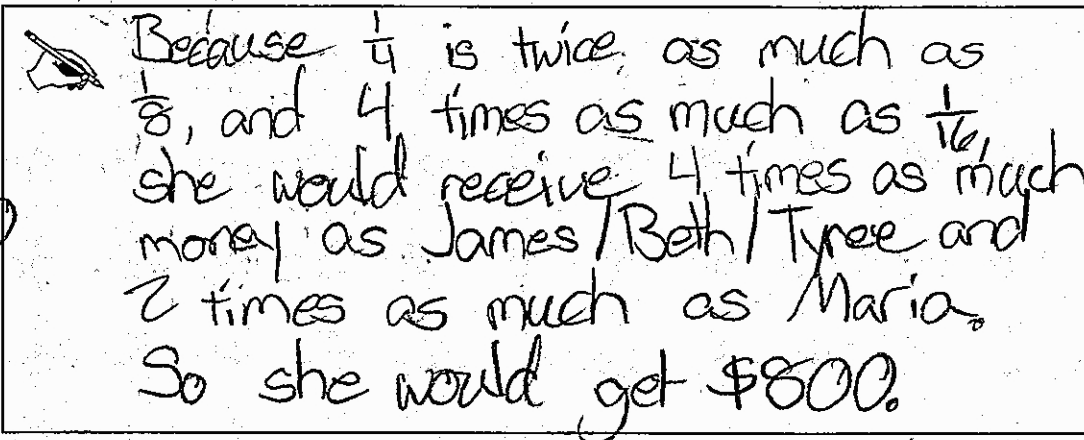 Because 1/4 is twice as much as
1/8, and 4 times as much as 1/16,
she would receive 4 times as much
money as James/Beth/Tyree and
2 times as much as Maria.
So she would get $800.